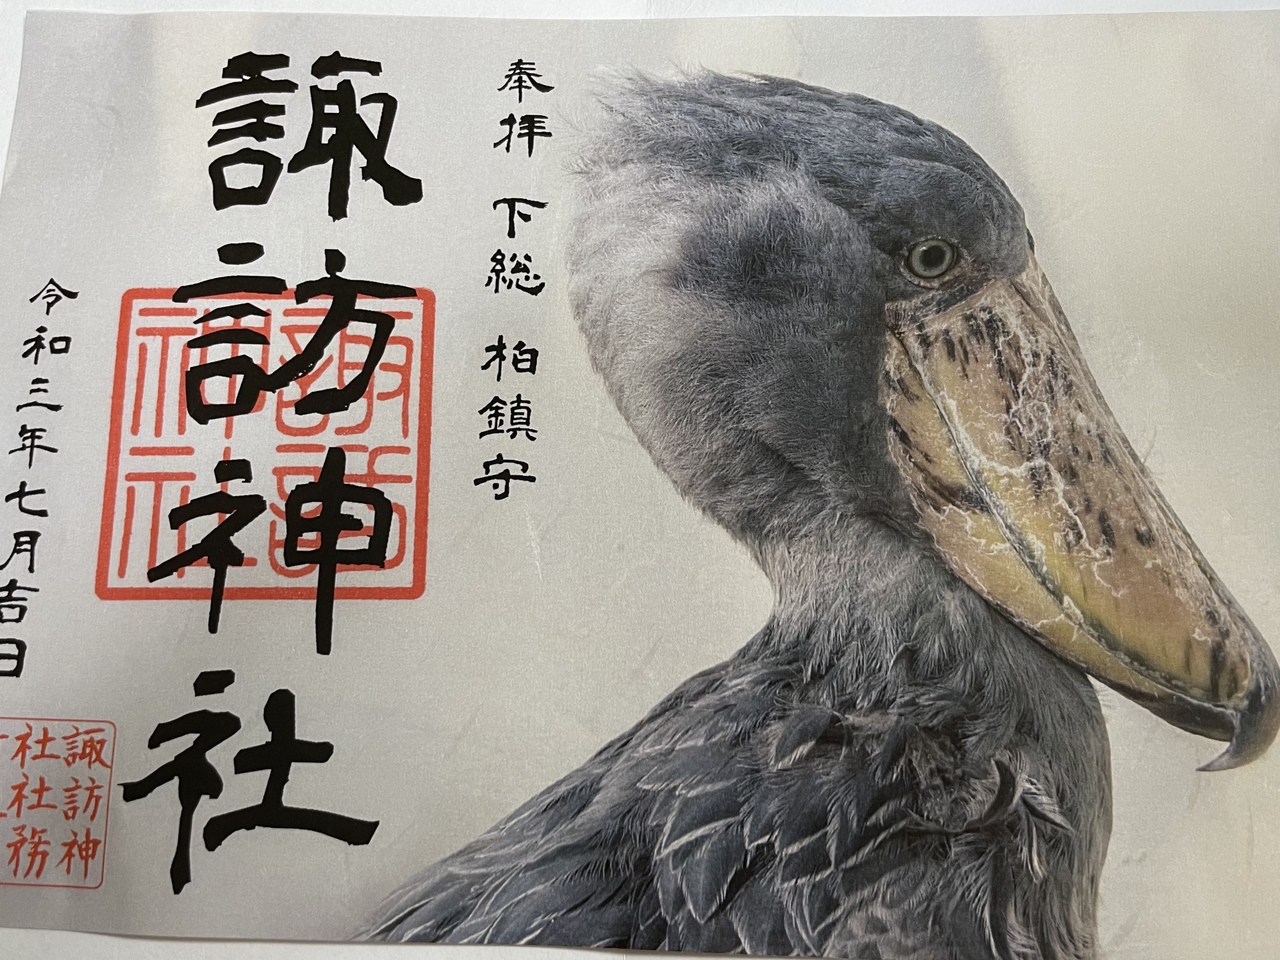 奉拝 下総 柏鎮守
諏訪神社
諏訪
神社
令和三年七月吉日
諏訪神
社社務